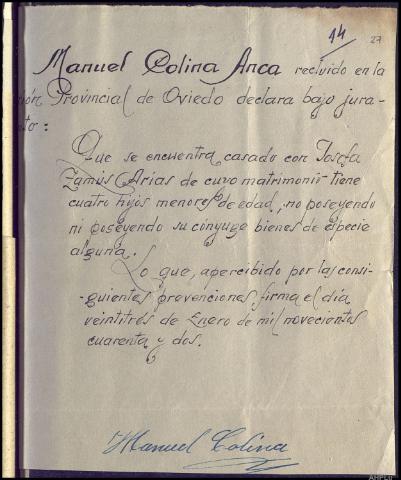 14
27
Manuel Colina Anca recluido en la
ión Provincial de Oviedo declara bajo jura-
to:
Que se encuentra casado con Josefa
Zamús Arias de cuyo matrimonio tiene
cuatro hijos menores de edad, no poseyendo
ni poseyendo su cónyuge bienes de especie
alguna.
Lo que, apercibido por las consi-
-guientes prevenciones, firma el día
veintitrés de Enero de mil novecientos
cuarenta y dos.
Manuel Colina